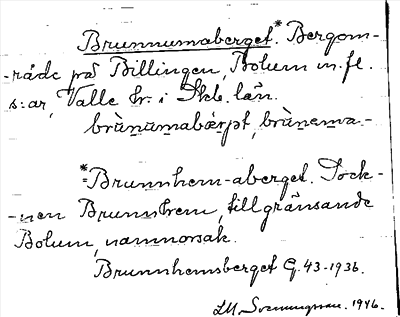 Brunnumaberget.* Bergom-
-råde på Billingen, Bolum m. fl.
s:ar, Valle hr. i Skb. län.
brùnumabærpt, brùnema-
*=Brunnhem-aberget. Sock-
-nen Brunnhem, till gränsande
Bolum, namnorsak.
Brunnhemsberget G. 43-1936.
1946.